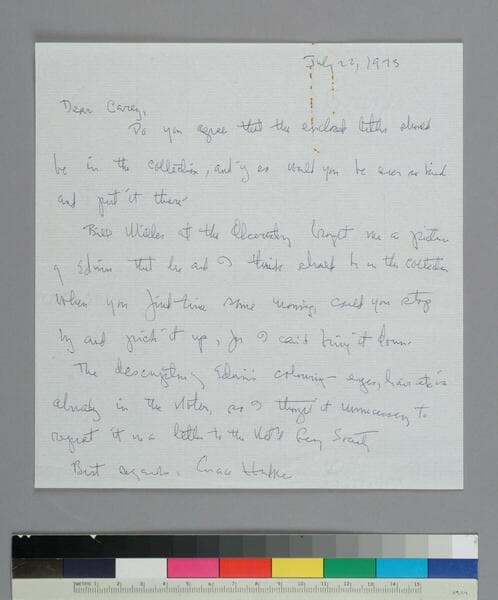 July 22, 1975
Dear Carey,
Do you agree that the enclosed letter should
be in the collection, and if so would you be ever so kind
and put it there.
Bill Miller at the Observatory brought me a picture
of Edwin that he and I think should be in the collection
When you find time some morning, could you stop
by and pick it up, for I can't bring it down.
The description of Edwin's colouring - eyes, hair etc is
already in the notes, so I thought it unnecessary to
repeat it in a letter to the Nat'l Geog Society
Best regards, Grace Hubble
1 2 3 4 5 6 7 8 9 10 11 12 13 14 15